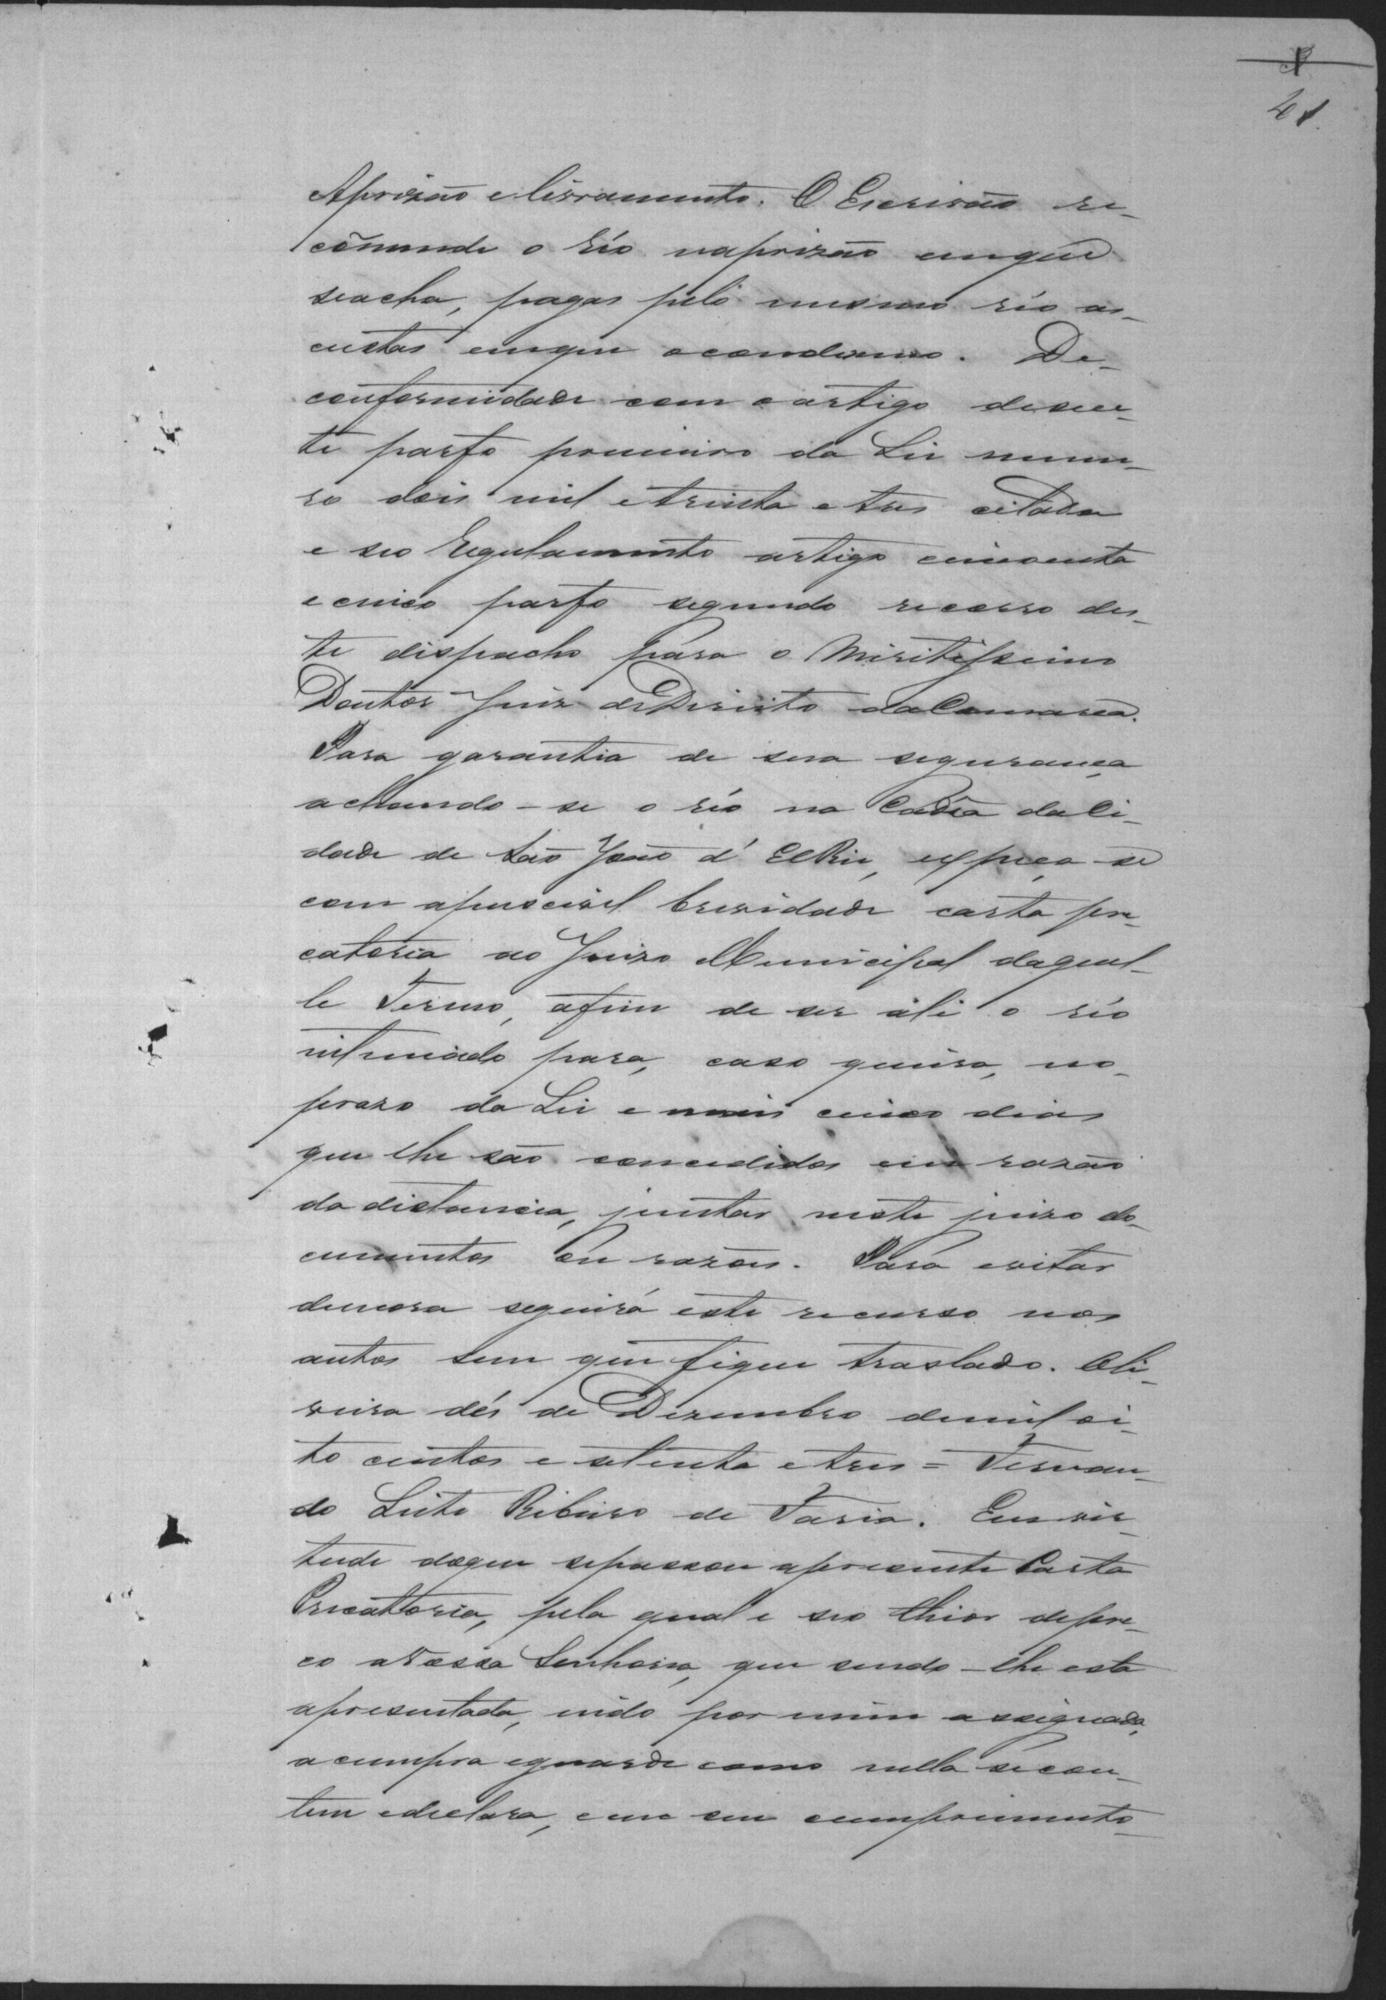 41
Aprizão e livramento. O Escrivão re-
cõmende o réo naprizão emque
seacha, pagas pelo mesmo réo as
custas emque ocondemno. De-
conformidade com oartigo dezece-
te parfo primeiro da Lei nume-
ro dois mil etrinta e tres citada
e seo Regulamento artigo cincoenta
ecinco parfo segundo recorro des-
te dispacho para o Miritissimo
Doutor Juiz deDireito daComarca.
Para garantia de sua segurança
achando-se o réo na Cadêa daCi-
dade de São João d'ElRei, expeça-se
com apuscivel brevidade carta pre-
catoria ao Juizo Municipal daquel-
le Termo, afim de ser ali o réo
intimado para, caso queira, no-
prazo da Lei e mais cinco dias
que lhe são concedidos em razão
da distancia, juntar neste juizo do-
cumentos ou razões. Para evitar
demora seguirá este recurso nos
autos sem que fique traslado. Oli-
veira dés de Dezembro demil oi-
to centos e setenta etres = Fernan-
do Leite Ribeiro de Faria. Em vir-
tude doque sepassou apresente Carta
Precattoria, pela qual e seo theor depre-
co aVossa Senhoria, que sendo-lhe esta
apresentada, indo por mim assignada,
acumpra eguarde como nella secon-
tem edeclara, e em seu cumprimento